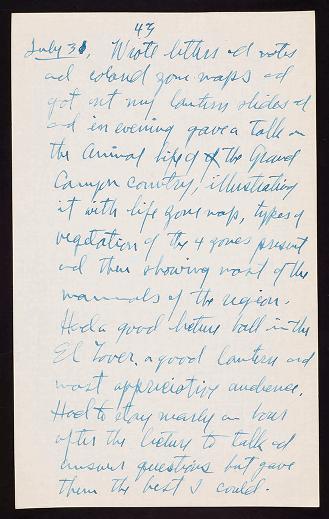 43
July 31, Wrote letters and notes
and colored zone maps and
got out my lantern slides and
and in evening gave a talk on
the Animal life of the Grand
Canyon country, illustrating
it with life zone map, types of
vegetation of the 4 zones present
and then showing most of the
mammals of the region.
Had a good lecture hall in the
El Tovar, a good lantern and
most appreciative audience.
Had to stay nearly an hour
after the lecture to talk and
answer questions but gave
them the best I could.